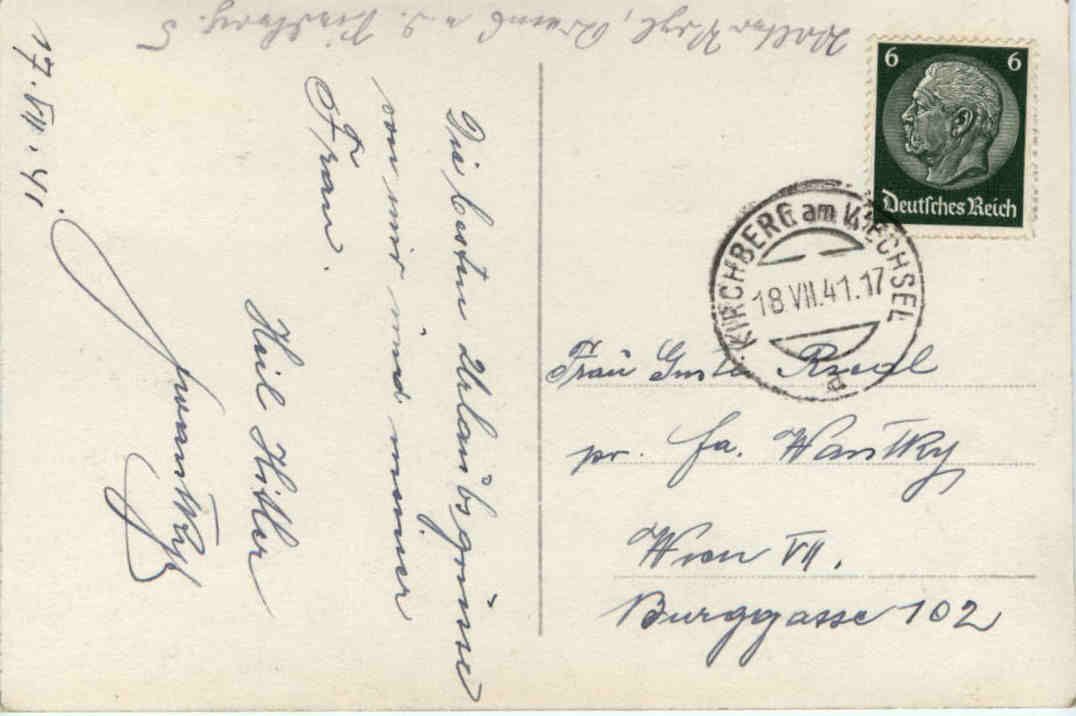 17. VII. 41.
Die besten Urlaubsgrüsse
von mir und meiner
Frau.
Heil Hitler
6 6
Deutsches Reich
KIRCHBERG am WECHSEL
18.VII.41.17
a
Frau Guste
pr. Fa. Wantky
Wien VII.
Burggasse 102